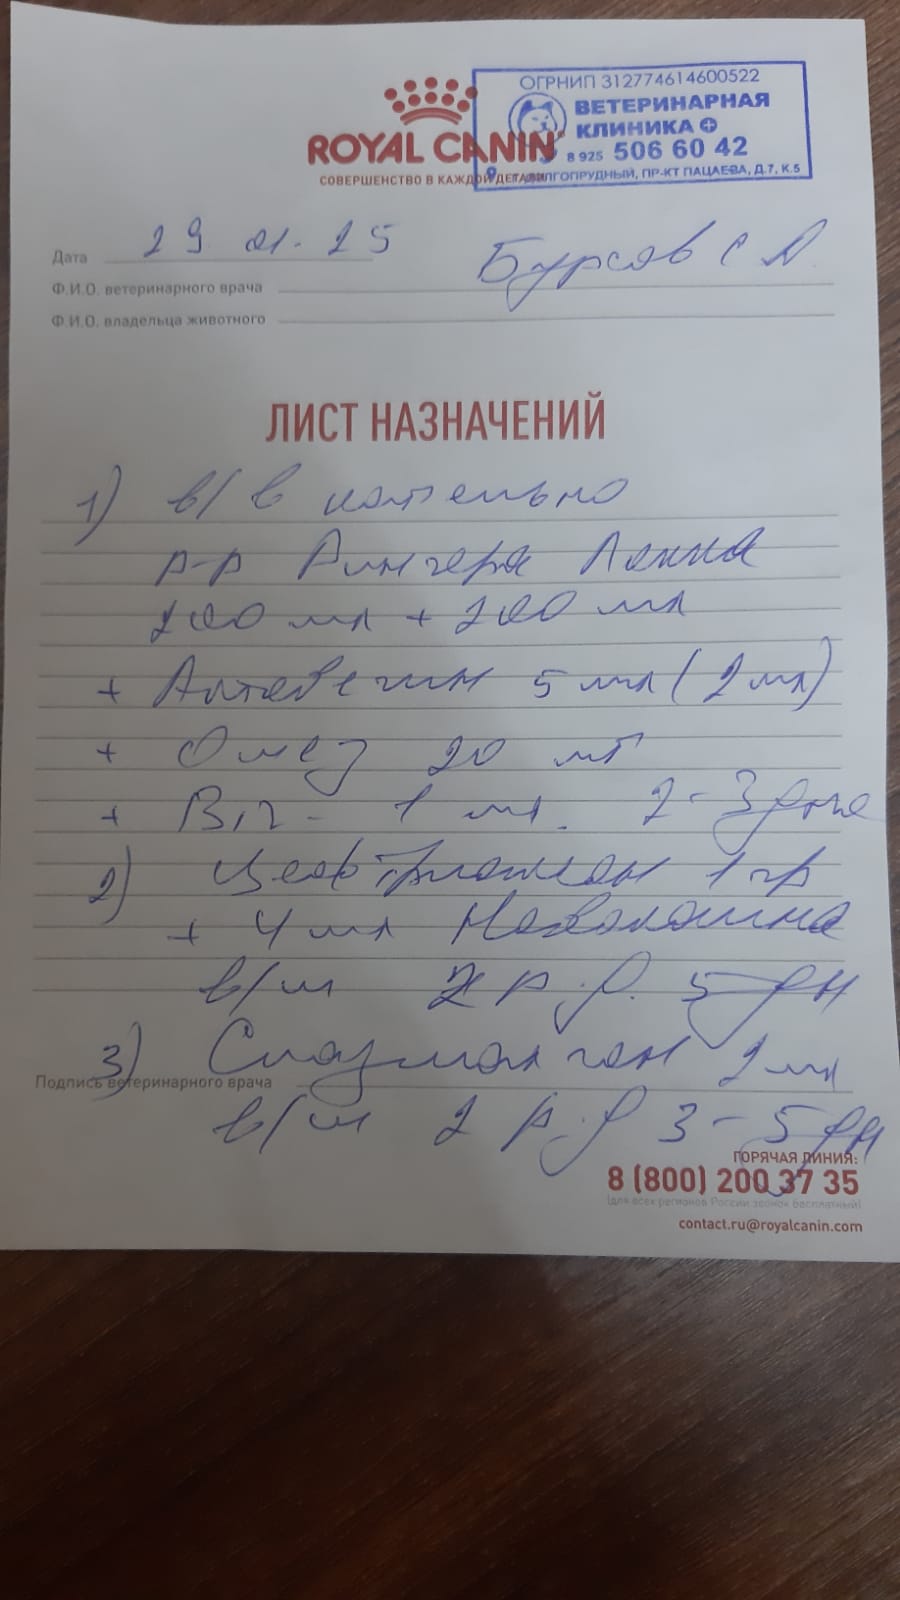 ОГРНИП 312774614600522
ВЕТЕРИНАРНАЯ
КЛИНИКА
8 925 506 60 42
ДОЛГОПРУДНЫЙ, ПР-КТ ПАЦАЕВА, Д.7, К.5
ROYAL CANIN
СОВЕРШЕНСТВО В КАЖДОЙ ДЕТАЛИ
Дата 29 01. 25
Бурсов С А
Ф.И.О. ветеринарного врача
Ф.И.О. владельца животного
ЛИСТ НАЗНАЧЕНИЙ
1) в/в капельно
р-р Рингера Локка
200 мл + 200 мл
+ Актовегин 5 мл (2 мл)
+ Омез 20 мг
+ B12 - 1 мл. 2-3 дня
2) Цефтриаксон 1 гр
+ 4 мл Новокаина
в/м 2 р.д. 5 дн
3) Спазмалгон 2 мл
Подпись ветеринарного врача
в/м 2 р.д 3-5 дн
ГОРЯЧАЯ ЛИНИЯ:
8 (800) 200 37 35
(для всех регионов России звонок бесплатный)
contact.ru@royalcanin.com